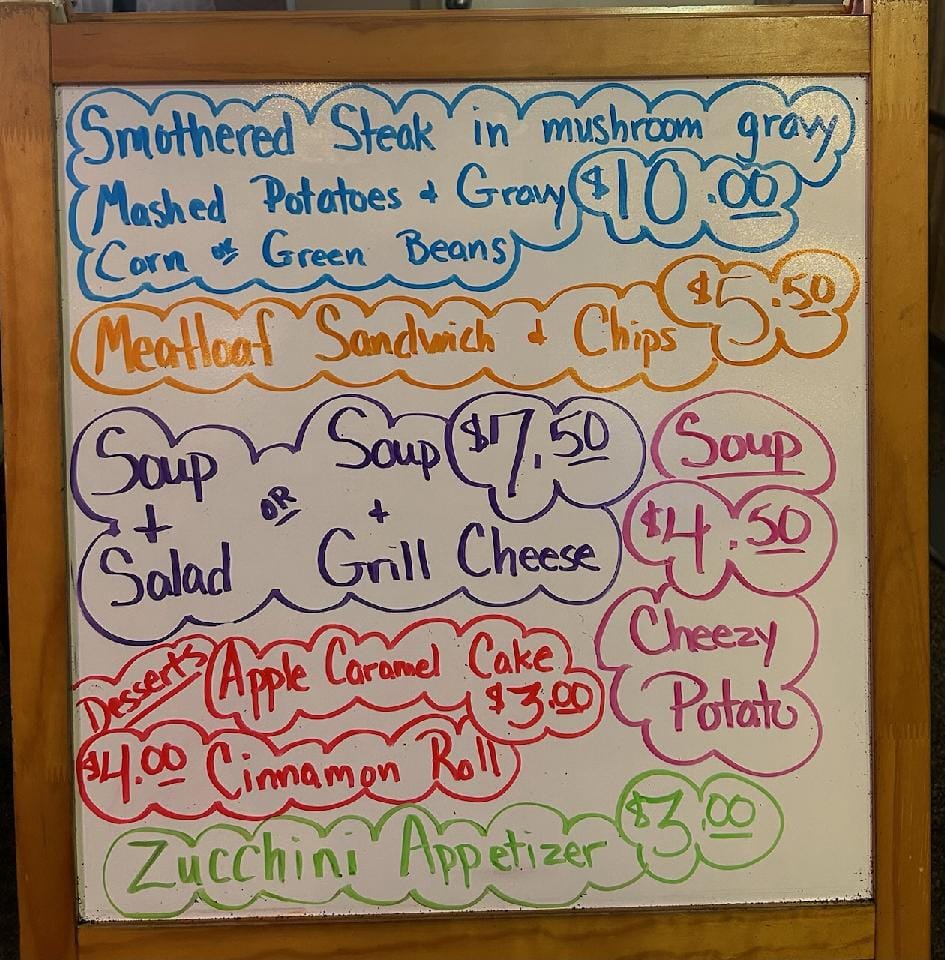 Smothered Steak in mushroom gravy
Mashed Potatoes & Gravy $10.00
Corn or Green Beans
Meatloaf Sandwich & Chips $5.50
Soup + Salad
OR
Soup + Grill Cheese
$7.50
Soup
$4.50
Cheezy
Potato
Desserts
Apple Caramel Cake
$3.00
$4.00 Cinnamon Roll
Zucchini Appetizer $3.00